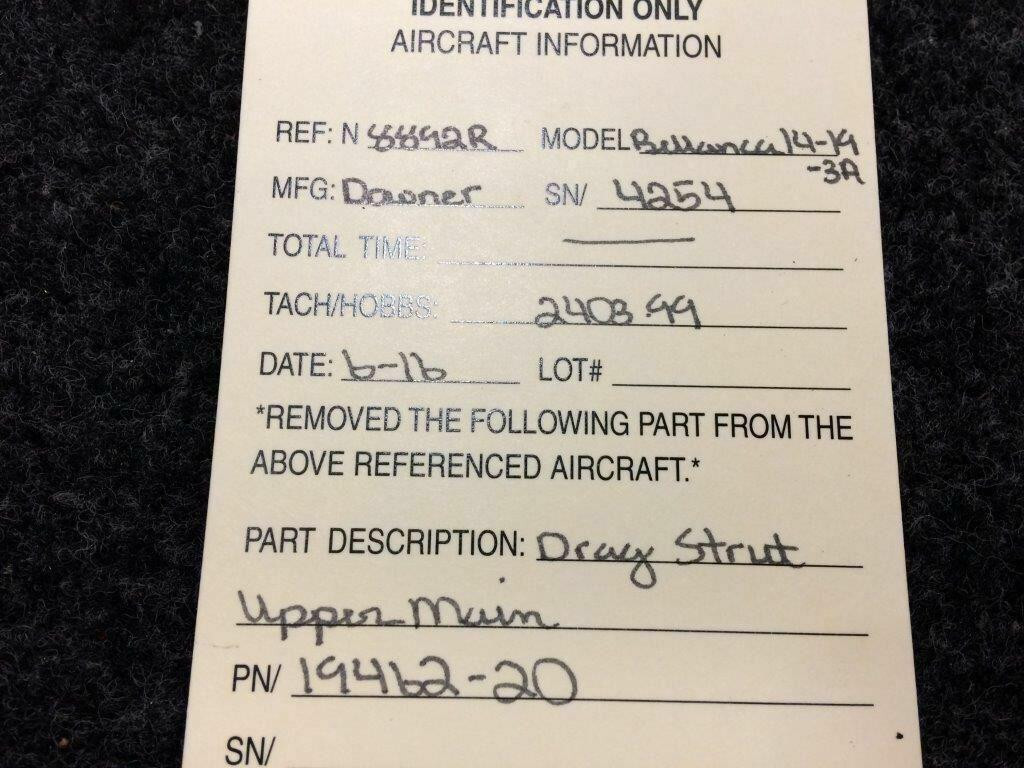 IDENTIFICATION ONLY
AIRCRAFT INFORMATION
REF: N 8892R MODEL Bellanca 14-19
-3A
MFG: Downer SN/ 4254
TOTAL TIME: —
TACH/HOBBS: 2403.99
DATE: 6-16 LOT#
*REMOVED THE FOLLOWING PART FROM THE
ABOVE REFERENCED AIRCRAFT.*
PART DESCRIPTION: Drag Strut
Upper Main
PN/ 19462-20
SN/